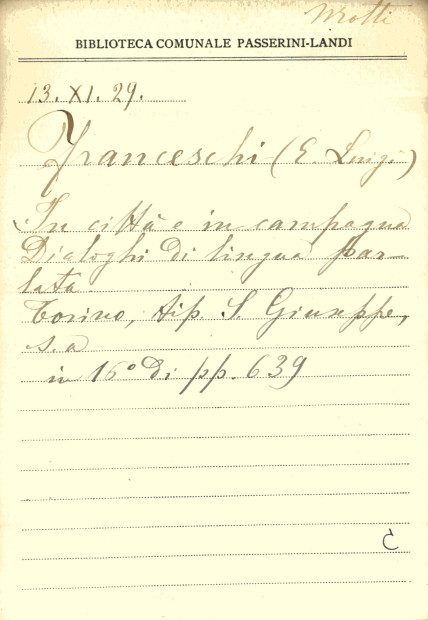 BIBLIOTECA COMUNALE PASSERINI-LANDI
13. XI. 29.
Franceschi (E. Luigi)
In città e in campagna
Dialoghi di lingua par-
lata.
Torino, tip. S. Giuseppe,
s. a
in 16° di pp. 639
C